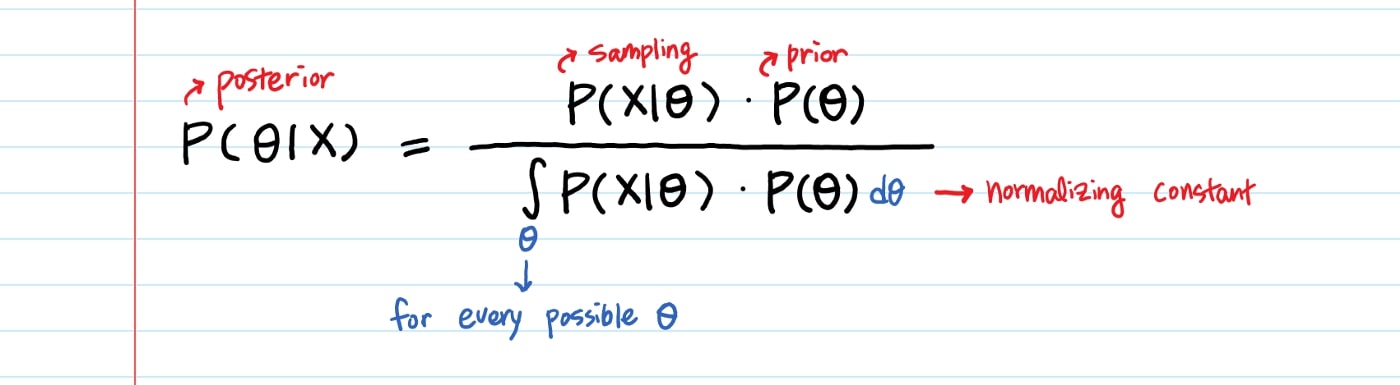 posterior
sampling
prior
P(θ|X) = P(X|θ) · P(θ)
∫ P(X|θ) · P(θ) dθ → normalizing constant
θ
↓
for every possible θ